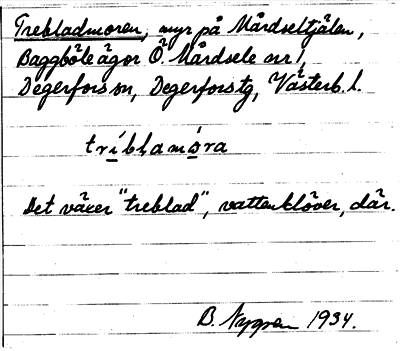 Trebladmoren, myr på Mårdseltjälen,
Baggböle ägor Ö. Mårdsele nr 1,
Degerfors sn, Degerfors tg, Västerb. l.
tríblamóra
Det växer "treblad", vattenklöver, där.
B. Nygren 1934.